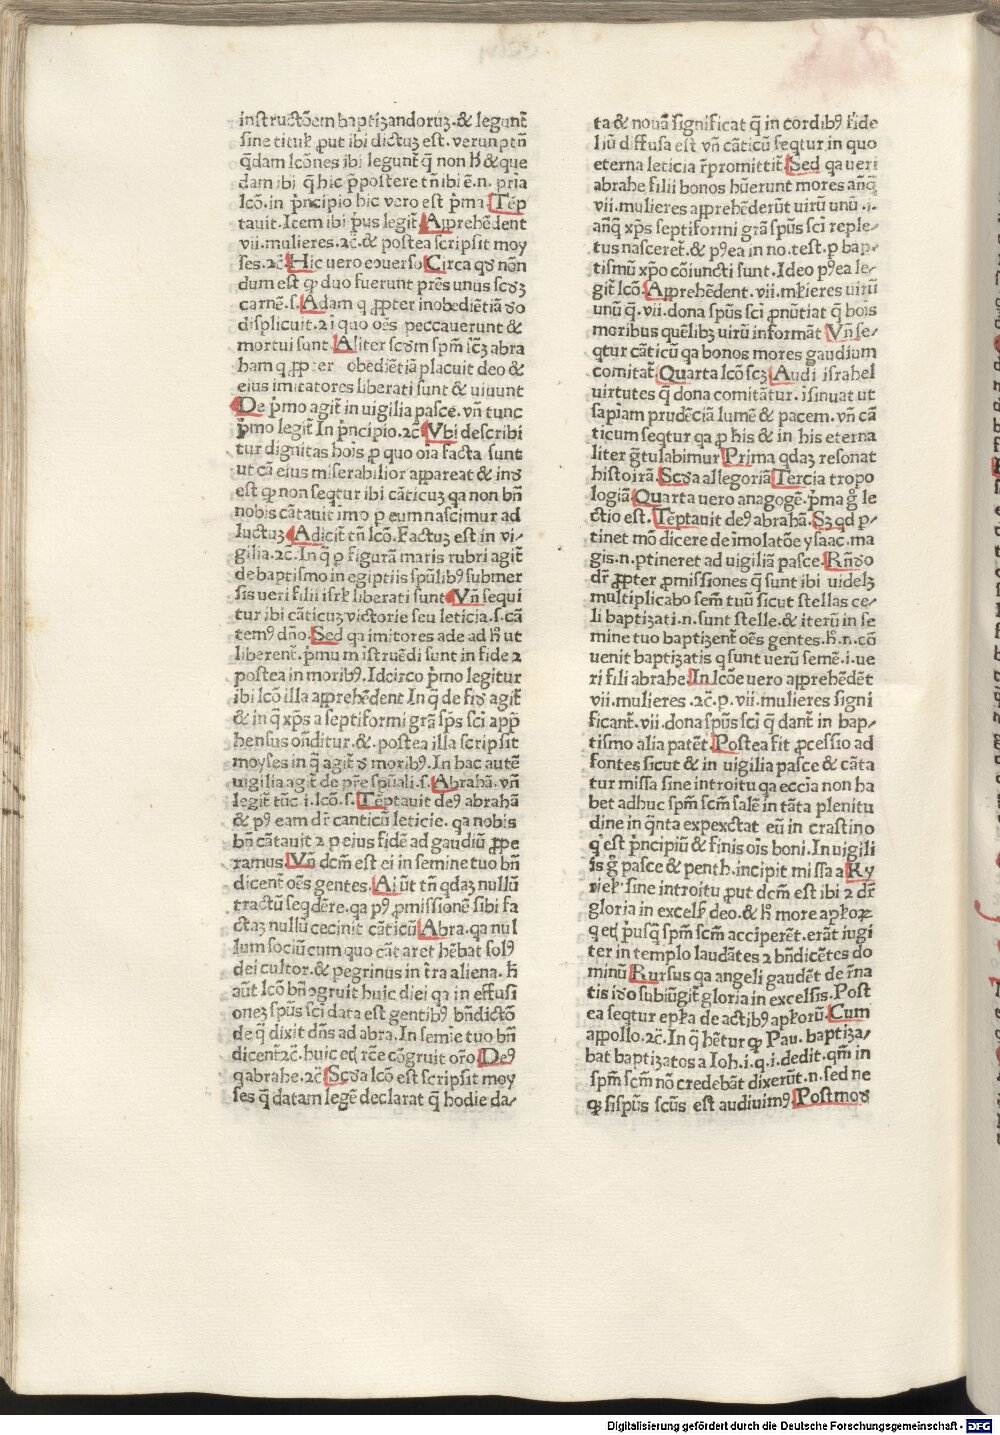 instructõem baptiʒandoruʒ.& legunt̃
sine titul̃ ꝓut ibi dictuʒ est. verunptñ
q̃dam lcõnes ibi legunt̃ q̃ non h̃ & que
dam ibi q̃ hic p̃postere tñ ibi ẽ.n. pria
lcõ.in p̃ncipio hic vero est p̃ma. Tẽp
tauit.Item ibi p̃us legit̃ Apprehẽdent
vii.mulieres.2c̃.& postea scripsit moy
ses.2c̃ Hic uero eↄuerso Circa qđ nõn
dum est ꝙ duo fuerunt prẽs unus scđʒ
carnẽ.s. Adam q ꝓpter inobediẽtiã đo
displicuit.2 ĩ quo oẽs peccauerunt &
mortui sunt. Aliter scđm spm̃ sc̃ʒ abra
ham q ꝓpter obediẽtiã placuit deo &
eius imitatores liberati sunt & uiuunt
De p̃mo agit̃ in uigilia pasce. vñ tunc
p̃mo legit̃ In p̃ncipio.2c̃ Vbi describi
tur dignitas hois ꝑ quo oĩa facta sunt
ut cã eius miserabilior appareat & inđ
est ꝙ non seqtur ibi cãticuʒ qa non bñ
nobis cãtauit imo ꝑ eum nascimur ad
luctuʒ Adicit̃ tñ lcõ.Factuʒ est in vi-
gilia.2c̃.In q̃ ꝑ figurã maris rubri agit̃
de baptismo in egiptiis spũlibꝰ submer
sis ueri filii isrl̃ liberati sunt Vñ sequi
tur ibi cãticuʒ victorie seu leticia.s.cã
temꝰ dño. Sed qa imitores ade ad h̃ ut
liberent̃.p̃mu m istruẽdi sunt in fide 2
postea in moribꝰ.Idcirco p̃mo legitur
ibi lcõ illa apprehẽdent In q̃ de fiđ agit̃
& in q̃ xp̃s a septiformi grã sp̃s sc̃i app̃
hensus onditur.&.postea illa scripsit
moyses in q̃ agit̃ đ moribꝰ.In hac autẽ
uigilia agit̃ de prẽ spũali.s. Abrahã. vñ
legit̃ tũc.i.lcõ.s. Tẽptauit deꝰ abrahã
& pꝰ eam dr̃ canticũ leticie. qa nobis
bñ cãtauit 2 ꝑ eius fidẽ ad gaudiũ ꝓpe
ramus. Vñ dcm̃ est ei in semine tuo bñ
dicent̃ oẽs gentes. Ai ũt tñ qdaʒ nullũ
tractũ seqđere. qa pꝰ ꝓmissionẽ sibi fa
ctaʒ nullũ cecinit cãticũ Abra.qa nul
lum sociũ cum quo cãt aret hẽbat solꝰ
dei cultor.& pegrinus in t̃ra aliena. h̃
aũt lcõ bñↄgruit huic diei qa in effusi
oneʒ spũs sc̃i data est gentibꝰ bñdictõ
de q̃ dixit dñs ad abra.In semĩe tuo bñ
dicent̃2c̃.huic et̃ rc̃e cõgruit orõ. Deꝰ
q abrahe.2c̃ Scđa lcõ est scripsit moy
ses q̃ datam legẽ declarat q̃ hodie da-
ta & nouã significat q̃ in cordibꝰ fide
liũ diffusa est vñ cãticũ seqtur in quo
eterna leticia r̃promittit̃ Sed qa ueri
abrahe filii bonos hũerunt mores añq̃
vii.mulieres apprehẽderũt uirũ unũ.i.
añq̃ xp̃s septiformi grã spũs sc̃i reple-
tus nasceret̃.& pꝰea in no.test.ꝑ bap-
tismũ xp̃o cõiuncti sunt.Ideo pꝰea le-
git̃ lcõ. Apprehẽdent.vii.ml̃ieres uirũ
unũ q̃.vii.dona spũs sc̃i ꝓnũtiat q̃ bois
moribus quẽlibʒ uirũ informãt Vñ se-
qtur cãticũ qa bonos mores gaudium
comitat̃ Quarta lcõ scʒ Audi israhel
uirtutes q̃ dona comitãtur.isinuat ut
sapiam prudẽciã lumẽ & pacem. vñ cã
ticum seqtur qa ꝑ h̃is & in his eterna
liter g̃tulabimur Prima qdaʒ resonat
histoirã. Scđa allegoriã Tercia tropo
logiã Quarta uero anagogẽ.p̃ma g̃ le
ctio est. Tẽptauit deꝰ abrahã. Sʒ qd ꝑ-
tinet mõ dicere de ĩmolatõe ysaac.ma
gis.n.ptineret ad uigiliã pasce. Rñđo
dr̃ ꝓpter ꝓmissiones q̃ sunt ibi uidelʒ
multiplicabo sem̃ tuũ sicut stellas ce-
li baptiʒati.n.sunt stelle.& iterũ in se
mine tuo baptiʒent̃ oẽs gentes.h̃.n.cõ
uenit baptiʒatis q sunt uerũ semẽ.i.ue
ri filii abrahe In lcõe uero apprehẽdẽt
vii.mulieres.2c̃.ꝑ.vii.mulieres signi
ficant̃.vii.dona spũs sc̃i q̃ dant̃ in bap-
tismo alia patẽt. Postea fit ꝓcessio ad
fontes sicut & in uigilia pasce & cãta
tur missa sine introitu qa eccia non ha
bet adhuc spm̃ scm̃ salẽ in tãta plenitu
dine in q̃nta expexctat eũ in crastino
q̃ est p̃ncipiũ & finis oĩs boni.In uigili
ĩs g̃ pasce & penth.incipit missa a Ky
riel̃ sine introitu ꝓut dcm̃ est ibi 2 dr̃
gloria in excels̃ deo.& h̃ more apl̃oꝝ
q et̃ p̃usq̃ spm̃ scm̃ acciperẽt.erãt iugi
ter in templo laudãtes 2 bñdicẽtes do
minũ Rursus qa angeli gaudẽt de r̃na
tis iđo subiũgit̃ gloria in excelsis.Post
ea seqtur epl̃a de actibꝰ apl̃orũ. Cum
appollo.2c̃.In q̃ hẽtur ꝙ Pau.baptiʒa-
bat baptiʒatos a Ioh.i.q.i.dedit.qm̃ in
spm̃ scm̃ nõ credebãt dixerũt.n.sed ne
ꝙ si spũs scũs est audiuimꝰ. Postmođ
Digitalisierung gefördert durch die Deutsche Forschungsgemeinschaft - DFG